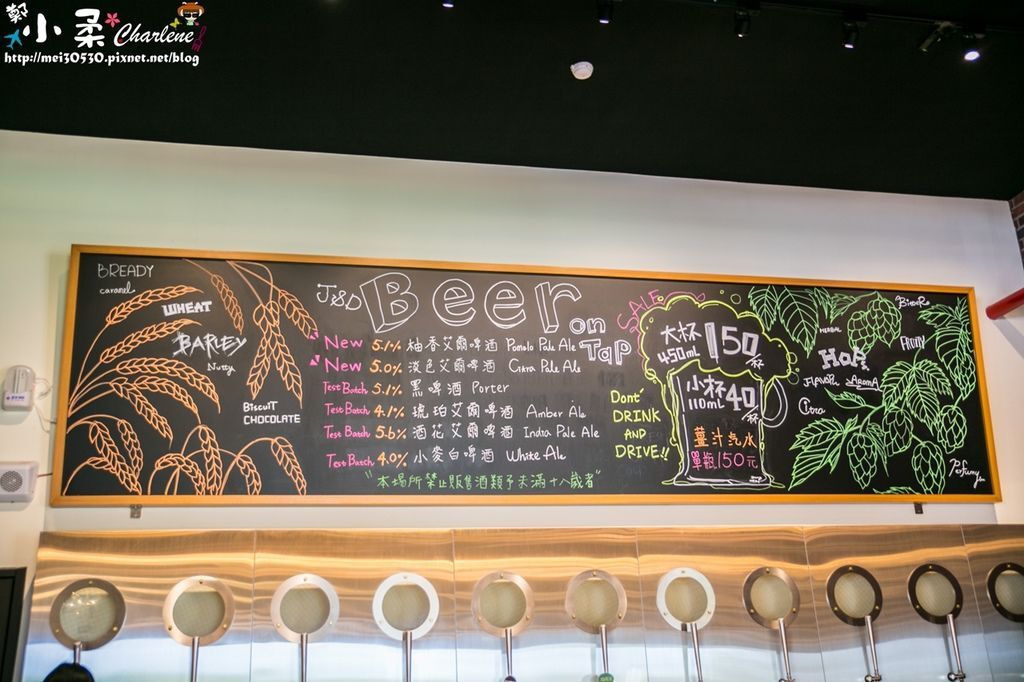 鄭小柔 Charlene
http://mei30530.pixnet.net/blog
BREADY
caramel
WHEAT
BARLEY
Nutty
BiscuiT
CHOCOLATE
J&D Beer on Tap
New 5.1% 柚香艾爾啤酒 Pomolo Pale Ale
New 5.0% 淡色艾爾啤酒 Citra Pale Ale
Test Batch 5.1% 黑啤酒 Porter
Test Batch 4.1% 琥珀艾爾啤酒 Amber Ale
Test Batch 5.6% 酒花艾爾啤酒 India Pale Ale
Test Batch 4.0% 小麥白啤酒 White Ale
"本場所禁止販售酒類予未滿十八歲者"
SALE
大杯 450ml 150/杯
小杯 110ml 40/杯
薑汁汽水
單瓶150元
Dont'
DRINK
AND
DRIVE!!
BitteR
HERBAL
FRUITY
HoP
FLAVOR AROMA
Citra